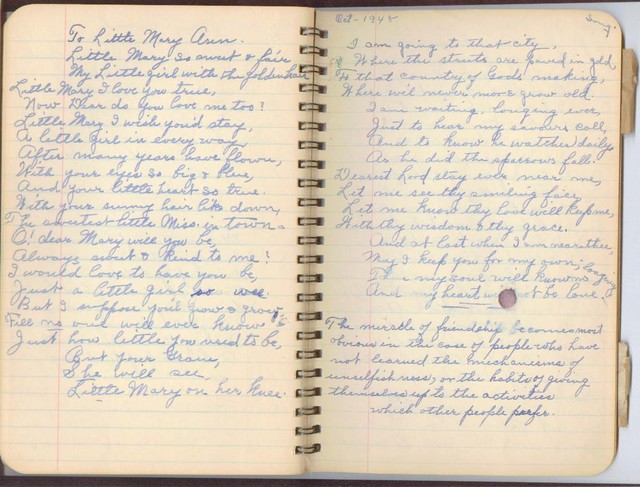 To Little Mary Ann.
Little Mary so sweet & fair
My Little girl with the golden hair
Little Mary I love you true,
Now dear do you love me too?
Little Mary I wish you'd stay,
A little girl in every way
After many years have flown,
With your eyes so big & blue,
And your little heart so true.
With your sunny hair like down,
The sweetest little Miss in town.
O! dear Mary will you be,
Always sweet & kind to me?
I would love to have you be,
Just a little girl so wee
But I suppose you'll grow & grow
Till no one will ever know
Just how little you used to be,
But your Grave,
She will see
Little Mary on her knee.
Oct - 1945
Song
I am going to that city,
Where the streets are paved in gold,
To that country of Gods making,
Where we'll never more grow old.
I am waiting, longing ever,
Just to hear my saviours call,
And to know he watches daily
As he did the sparrows fall.
Dearest Lord stay ever near me,
Let me see thy smiling face,
Let me know thy love will keep me,
With thy wisdom & thy grace.
And at last when I am near thee,
May I keep you for my own
my soul will know no longing
And my heart will not be lone.
The miracle of friendship becomes most
obvious in the case of people who have
not learned the mechanisms of
unselfishness, or the habits of giving
themselves up to the activities
which other people prefer.